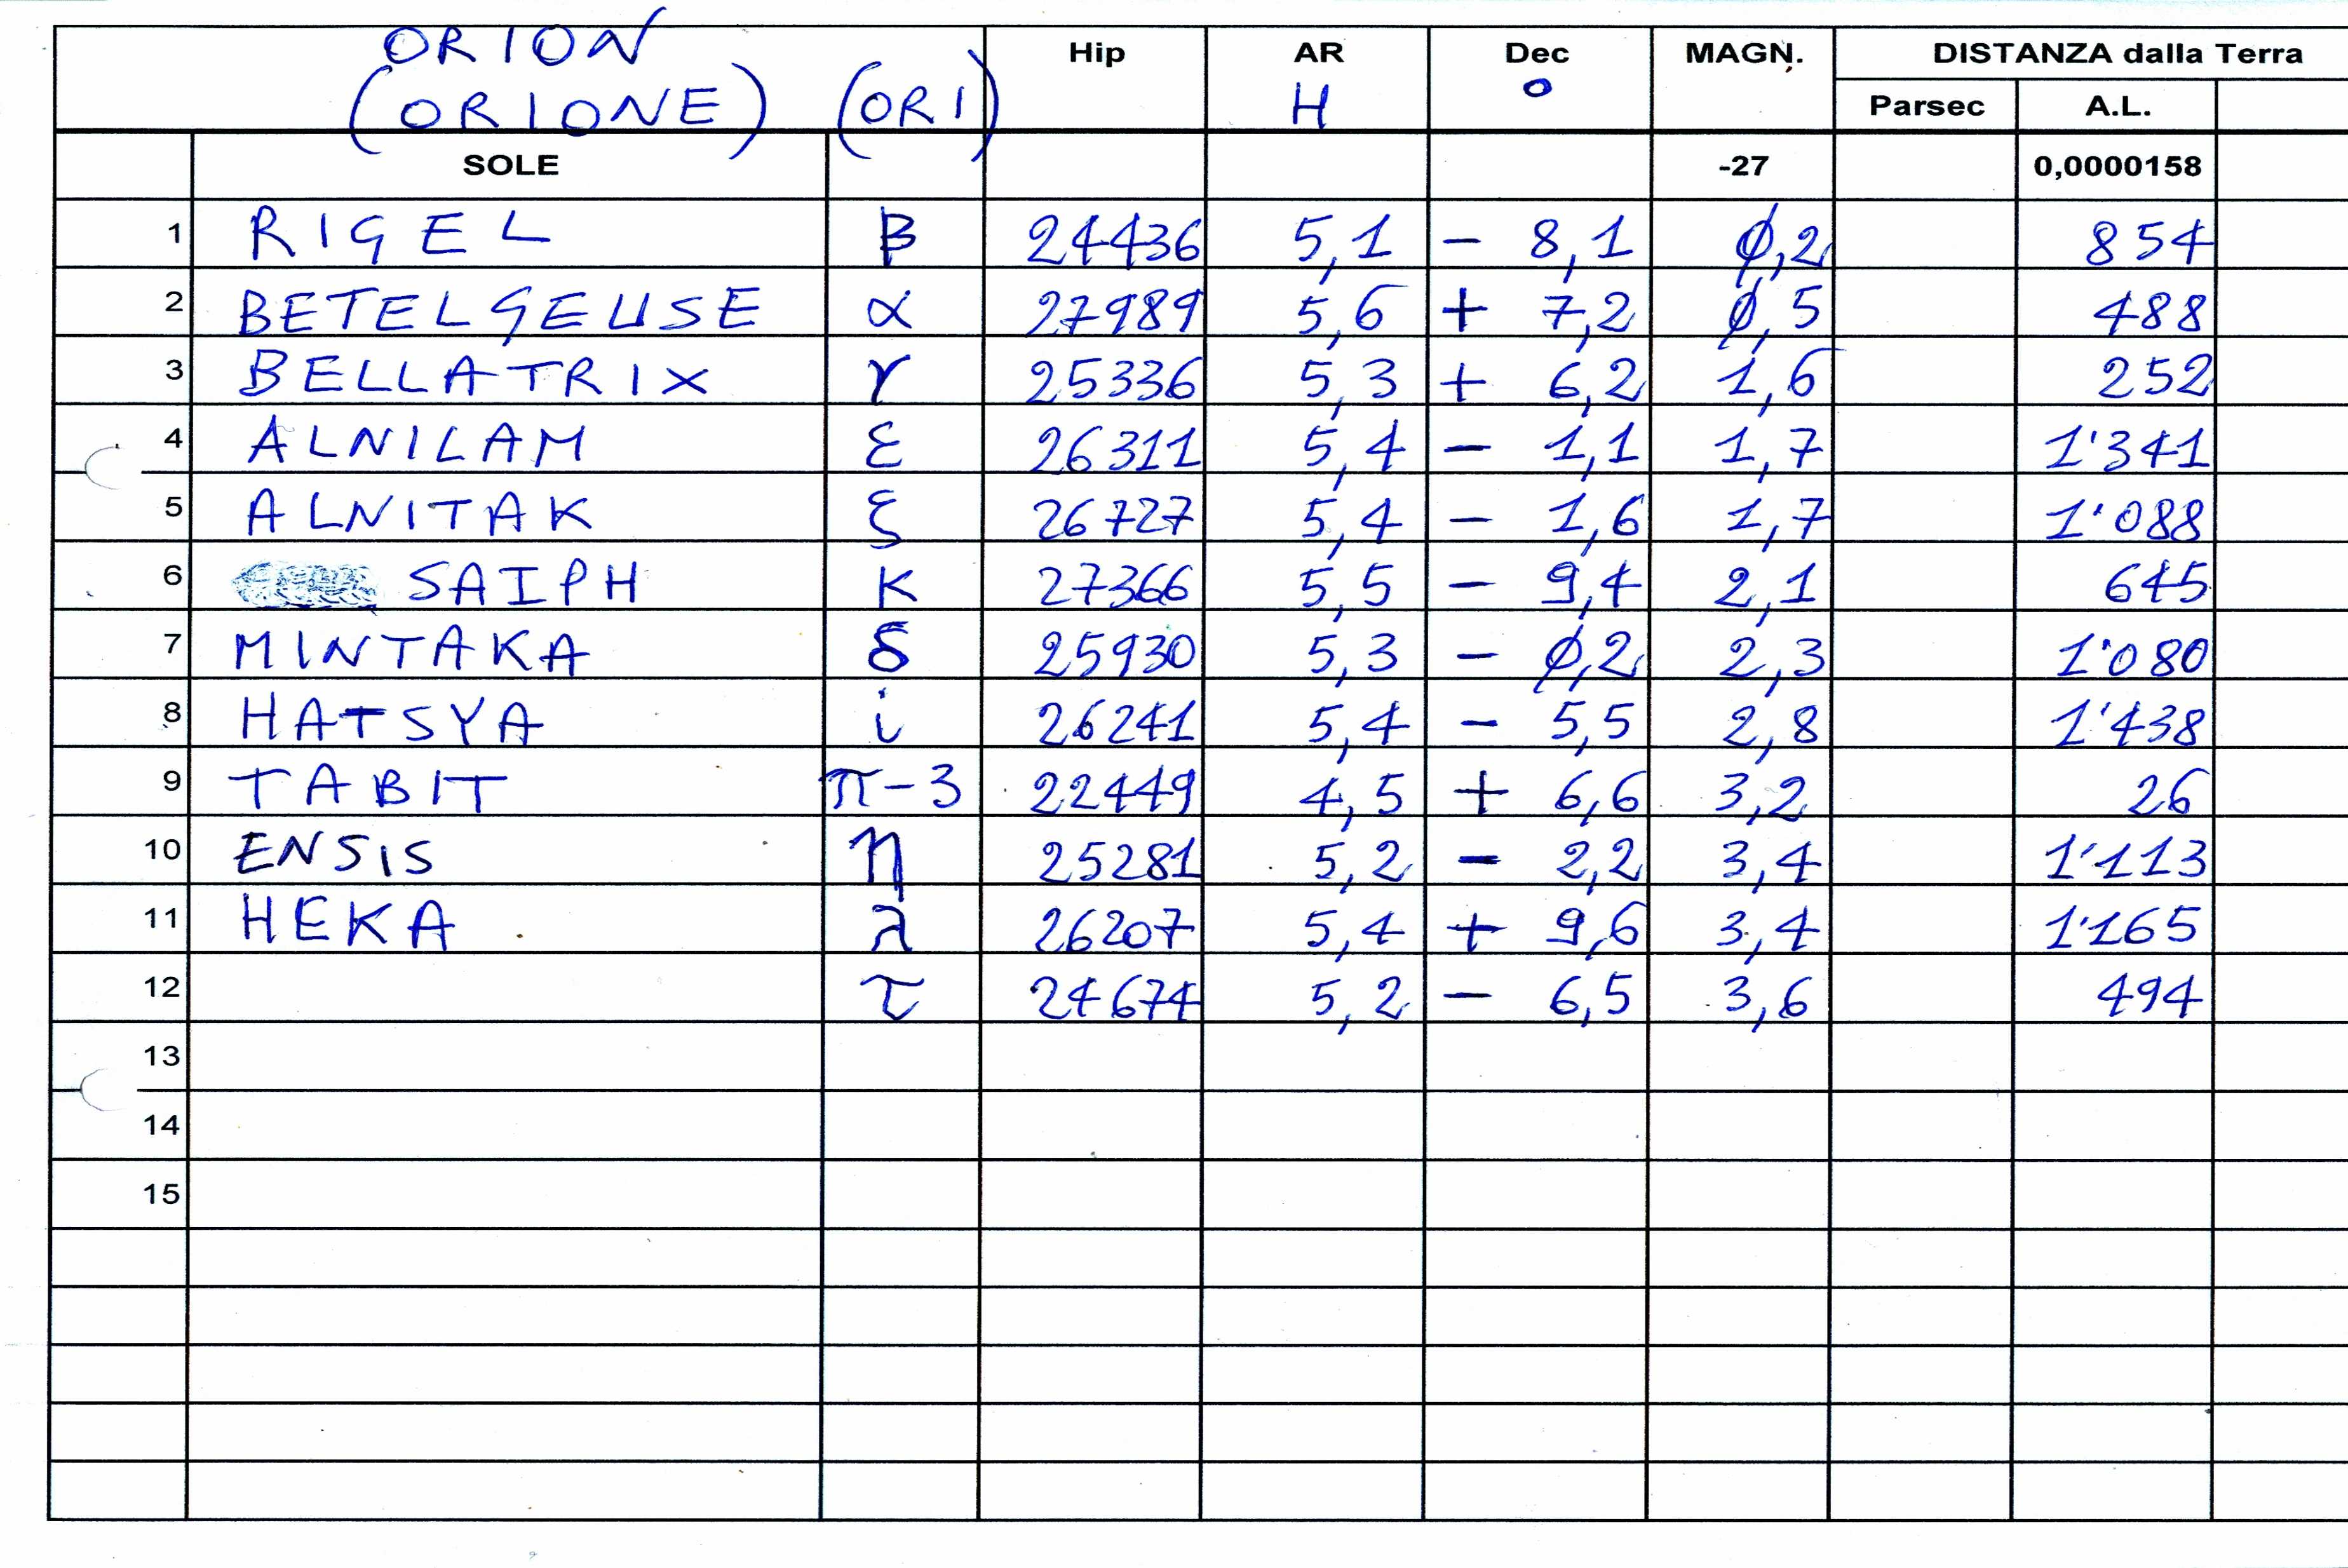 ORION Hip AR Dec MAGN. DISTANZA dalla Terra
(ORIONE) (ORI) H ° Parsec A.L.
SOLE -27 0,0000158
1 RIGEL β 24436 5,1 - 8,1 0,2 854
2 BETELGEUSE α 27989 5,6 + 7,2 0,5 488
3 BELLATRIX γ 25336 5,3 + 6,2 1,6 252
4 ALNILAM ε 26311 5,4 - 1,1 1,7 1'341
5 ALNITAK ξ 26727 5,4 - 1,6 1,7 1'088
6 SAIPH K 27366 5,5 - 9,4 2,1 645
7 MINTAKA δ 25930 5,3 - 0,2 2,3 1'080
8 HATSYA i 26241 5,4 - 5,5 2,8 1'438
9 TABIT π-3 22449 4,5 + 6,6 3,2 26
10 ENSIS η 25281 5,2 - 2,2 3,4 1'113
11 HEKA λ 26207 5,4 + 9,6 3,4 1'165
12 τ 24674 5,2 - 6,5 3,6 494
13
14
15